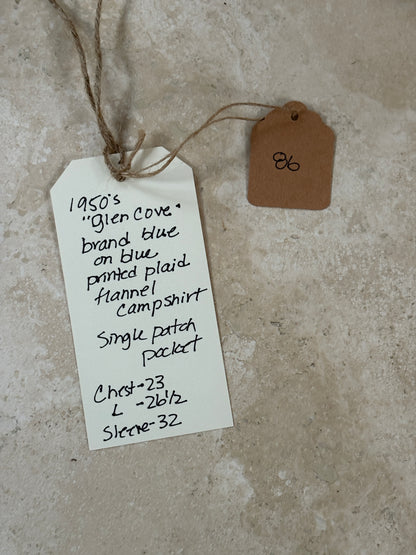 1950's
"Glen Cove"
brand blue
on blue
printed plaid
flannel
campshirt
single patch
pocket
Chest-23
L -26 1/2
Sleeve-32
86